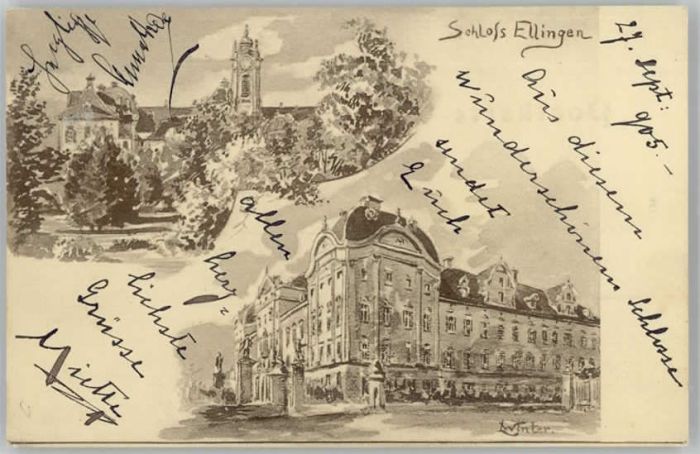 Schloss Ellingen
27. Sept: 905.-
Aus diesem
wunderschönen Schlosse
sendet
Euch
allen
herz=
lichste
Grüsse